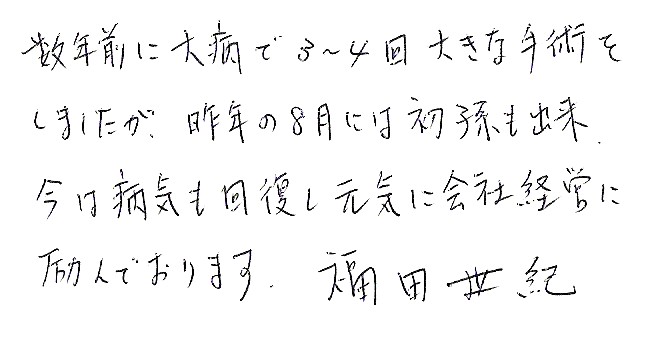 数年前に大病で3~4回大きな手術を
しましたが、昨年の8月には初孫も出来、
今は病気も回復し元気に会社経営に
励んでおります。 福田世紀